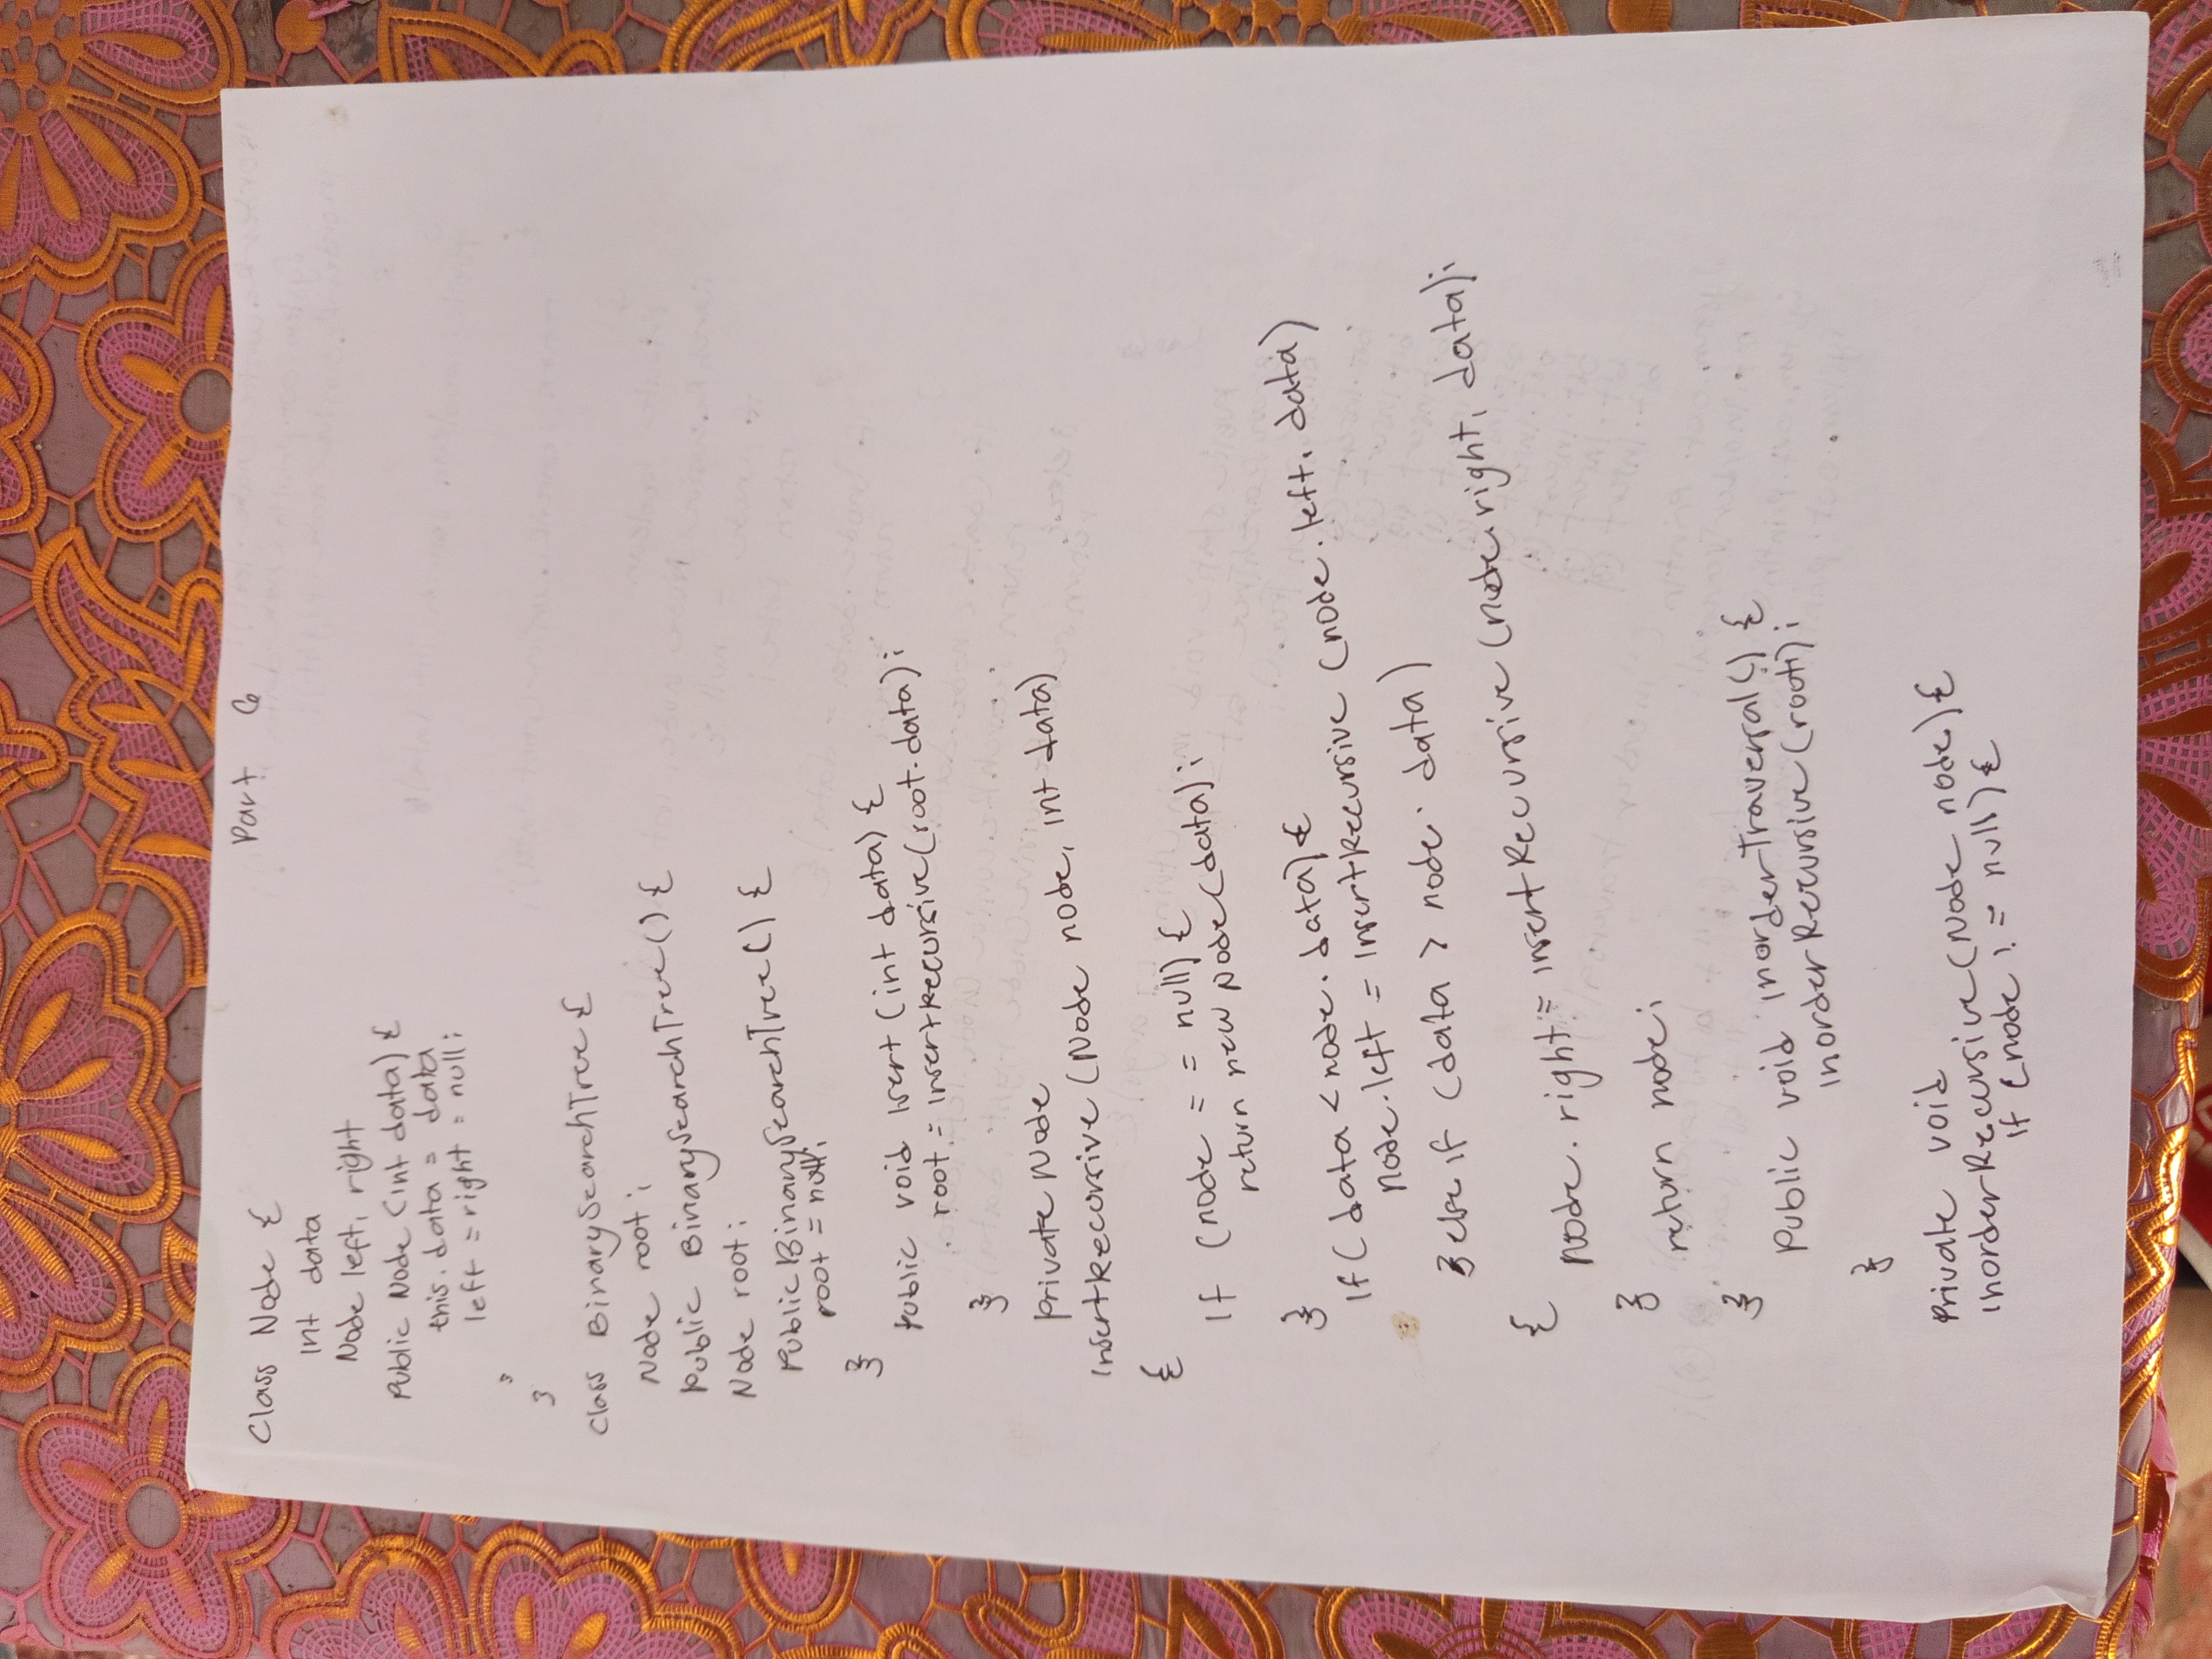 Part 6
Class Node {
Int data
Node left, right
Public Node (int data) {
this.data = data
left = right = null;
}
}
Class BinarySearchTree {
Node root;
Public BinarySearchTree() {
Node root;
Public BinarySearchTree() {
root = null;
}
Public void Isert (int data) {
root = InsertRecursive (root.data);
}
Private Node
InsertRecursive (Node node, int data)
{
If (node = = null) {
return new Node (data);
}
If (data < node. data) {
node.left = InsertRecursive (node.left, data)
} else if (data > node. data)
{
Node. right = InsertRecursive (node.right, data);
}
return node;
}
Public void InorderTraversal() {
InorderRecursive (root);
}
Private void
InorderRecursive (Node node) {
If (node != null) {